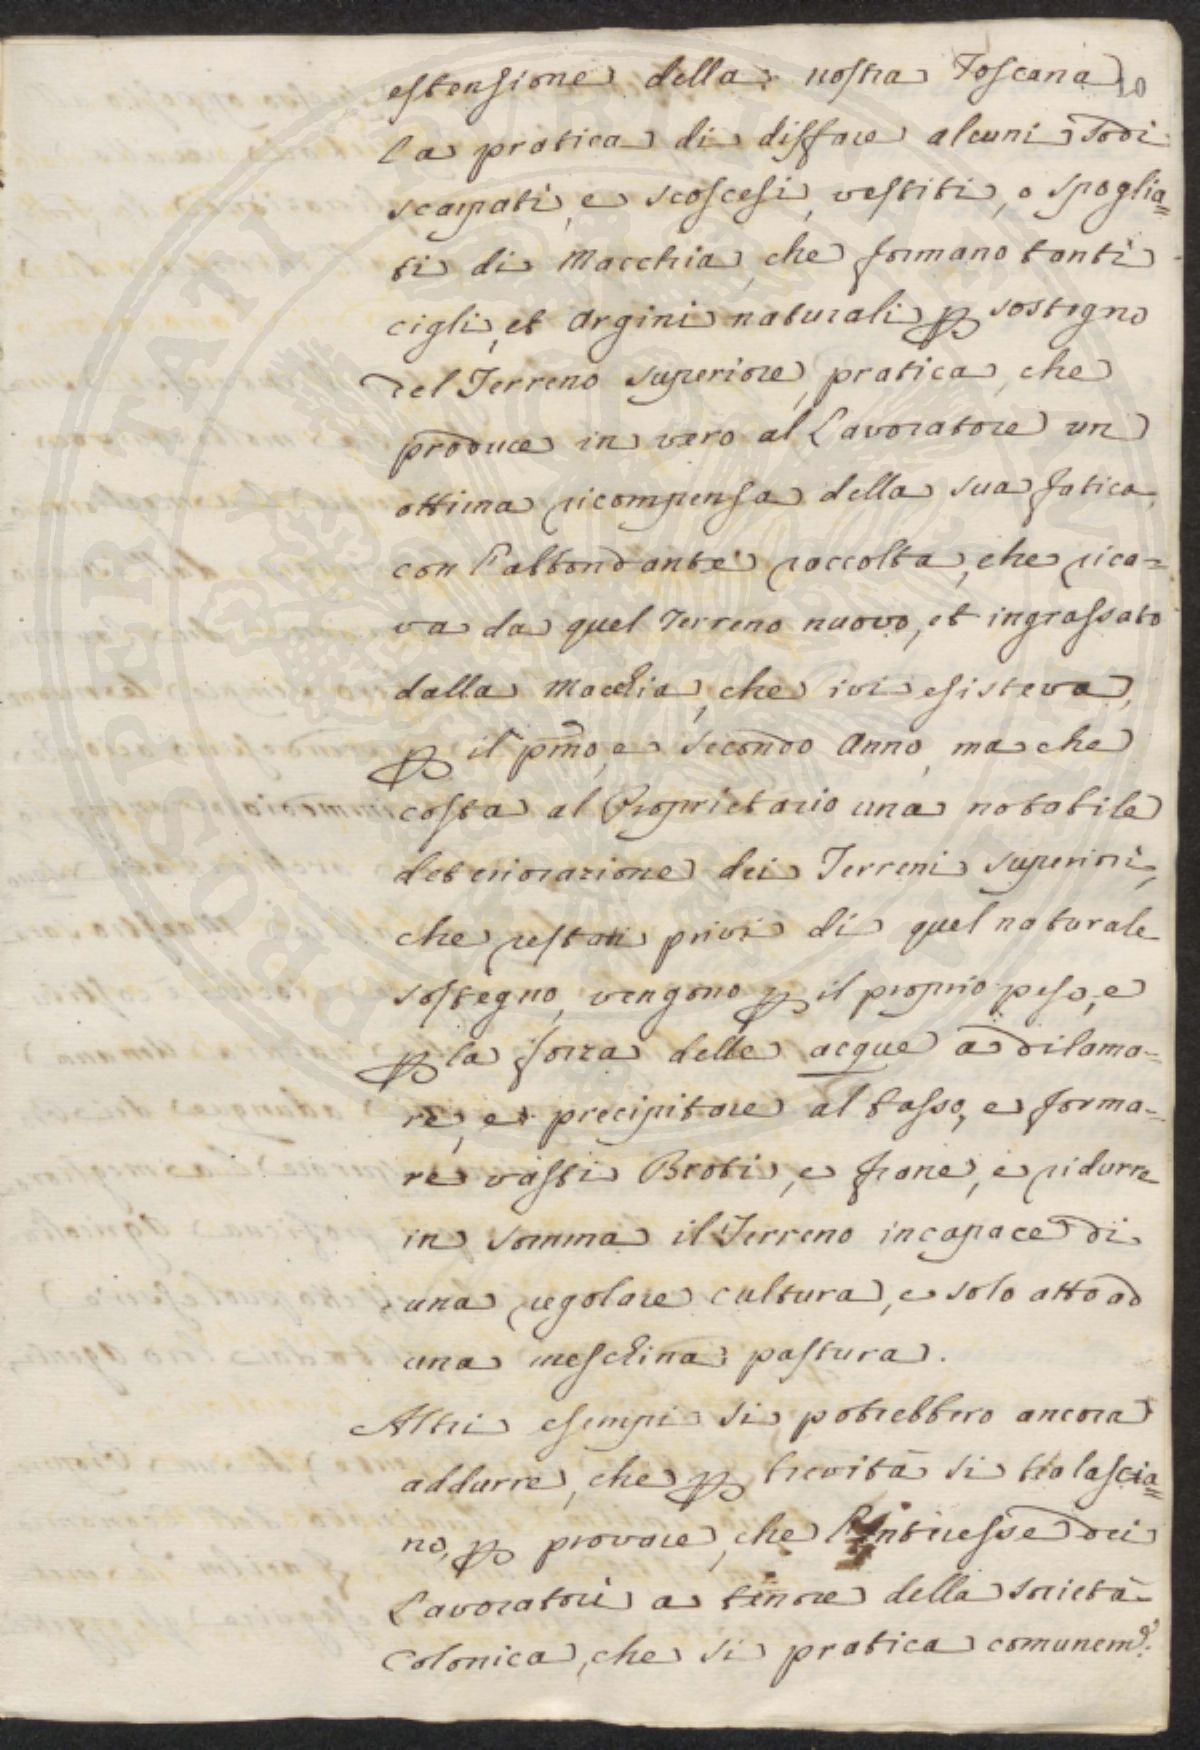 estensione della nostra Toscana 10
la pratica di disfare alcuni sodi
scarpati, e scoscesi, vestiti, o spoglia=
ti di Macchia, che formano tanti
cigli, et Argini naturali p sostegno
del Terreno superiore, pratica, che
produce in vero al Lavoratore un
ottima ricompensa della sua fatica
con l'abbondante raccolta, che rica=
va da quel Terreno nuovo, et ingrassato
dalla Macchia, che ivi esisteva,
p il pmo, e secondo Anno, ma che
costa al Proprietario una notabile
deteriorazione dei Terreni superiori,
che restati privi di quel naturale
sostegno, vengono p il proprio peso, e
p la forza delle acque a dilama=
re, e precipitare al basso, e forma=
re vasti Brobi, e frane, e ridurre
in somma il Terreno incapace di
una regolare cultura, e solo atto ad
una meschina pastura.
Altri esempi si potrebbero ancora
addurre, che p brevità si tralascia=
no, p provare, che l'Intresse dei
Lavoratori a tenore della società
Colonica, che si pratica comunemte